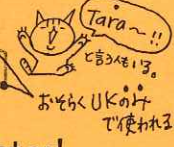 Tara～!!
と言う人もいる。
おそらくUKのみ
で使われる